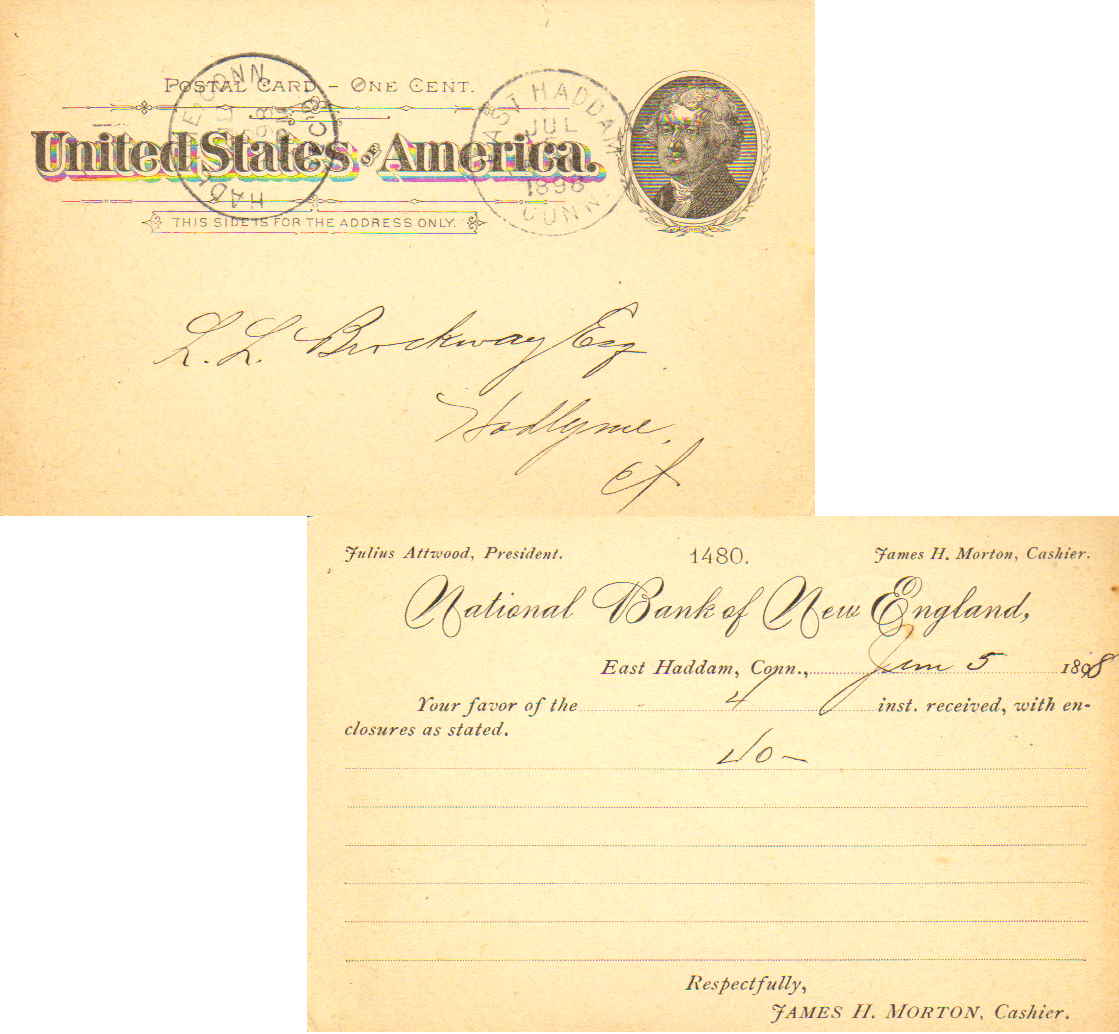 POSTAL CARD – ONE CENT.
United States OF America.
THIS SIDE IS FOR THE ADDRESS ONLY.
EAST HADDAM
JUL
1898
CONN.
L. L. Brockway Esq
Hadlyme,
Ct
Julius Attwood, President. 1480. James H. Morton, Cashier.
National Bank of New England,
East Haddam, Conn., 5 1898
Your favor of the 4 inst. received, with en-
closures as stated.
Respectfully,
JAMES H. MORTON, Cashier.